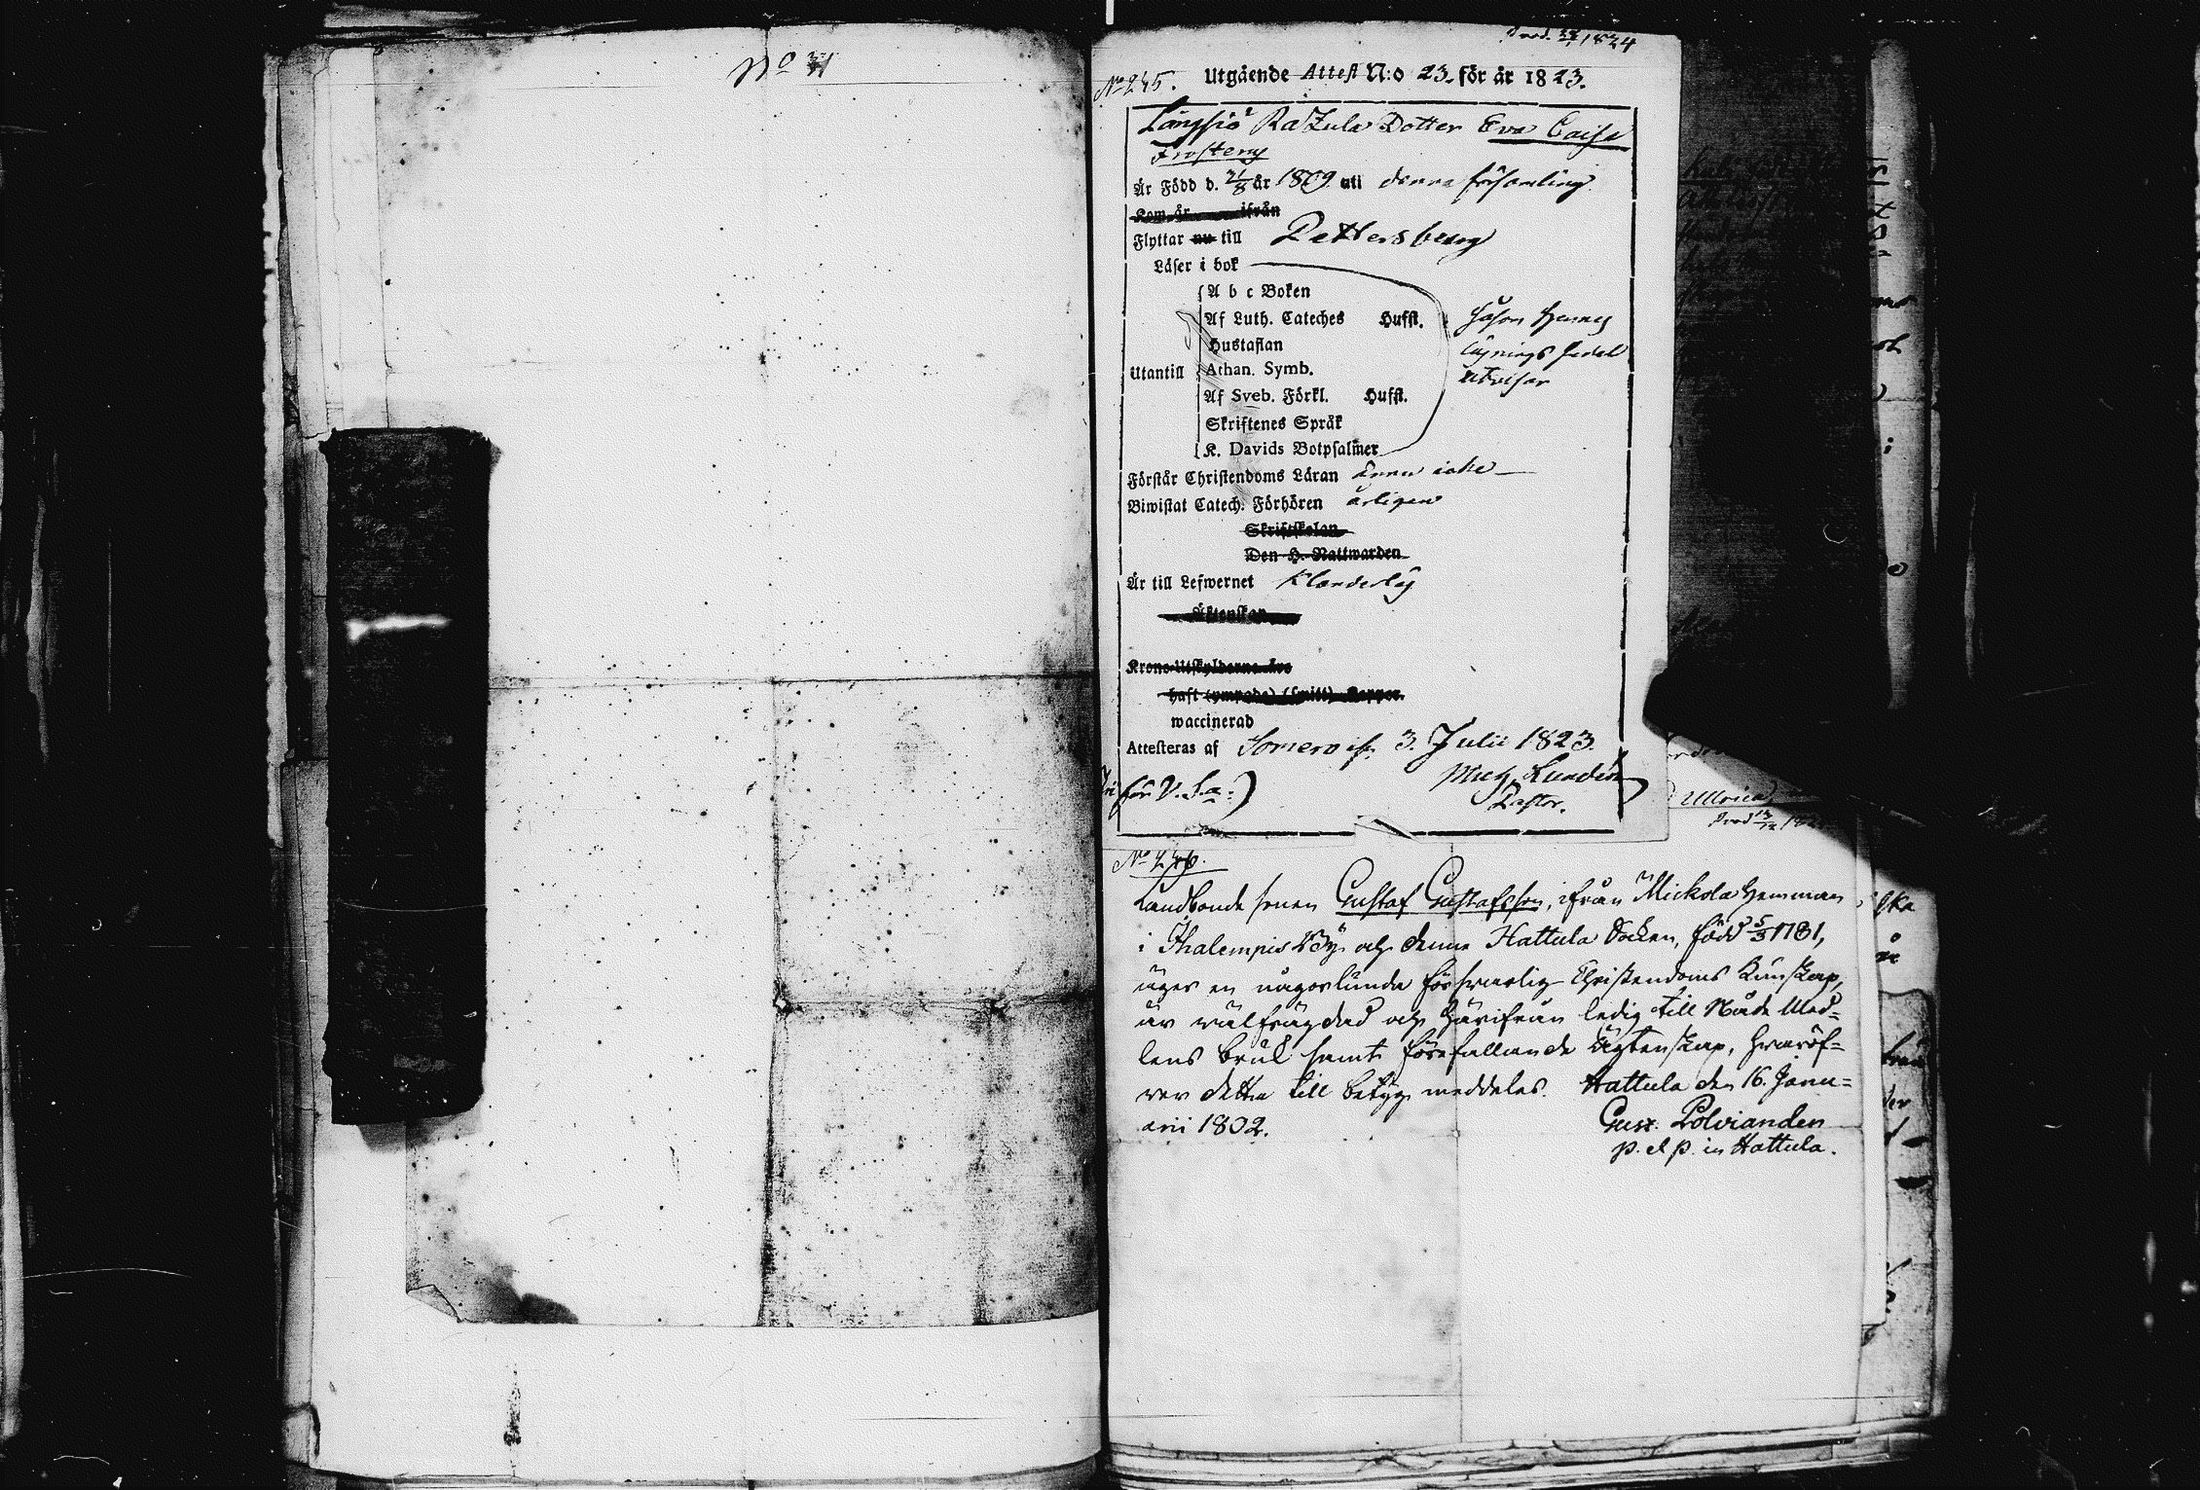 No 31
Prod. 1824
No 245.
Utgående Attest N:o 23. för år 1823.
Långsiö Rakula Dotter Eva Caisa
Frosterus
Är Född d. 21/8 år 1809. uti denna församling
Kom år ifrån
Flyttar nu till Pettersburg
Läser i bok
A b c Boken
Af Luth. Cateches Hufst.
Hustaflan
Utantill Athan. Symb.
Af Sveb. Förkl. Hufst.
Skriftenes Språk
K. Davids Botpsalmer
såsom hennes
läsnings sedel
utvisar
Förstår Christendoms Läran ännu icke
Biwistat Catech. Förhören årligen
Skriftskolan
Den H. Nattwarden
Är till Lefwernet Klanderlös
Äktenskap
Krono-Utskylderna
haft (ympade) (smitt) Koppor.
waccinerad
Attesteras af Somero 3. Julii 1823.
Mich. Lundén
för V. S. a.) Pastor.
Ulrica
No 246.
Landbonde sonen Gustaf Gustafsson, ifrån Mickola Hemman
i Thalempis By och denna Hattula Socken, född 5/3 1781,
äger en någorlunda försvarlig Christendoms Kunskap,
är välfrägdad och härifrån ledig till Nåde Med=
lens bruk samt förefallande Ägtenskap, hvaröf=
ver detta till betyg meddelas. Hattula den 16. Janu=
arii 1802. Gust. Polviander
p. et p. in Hattula.